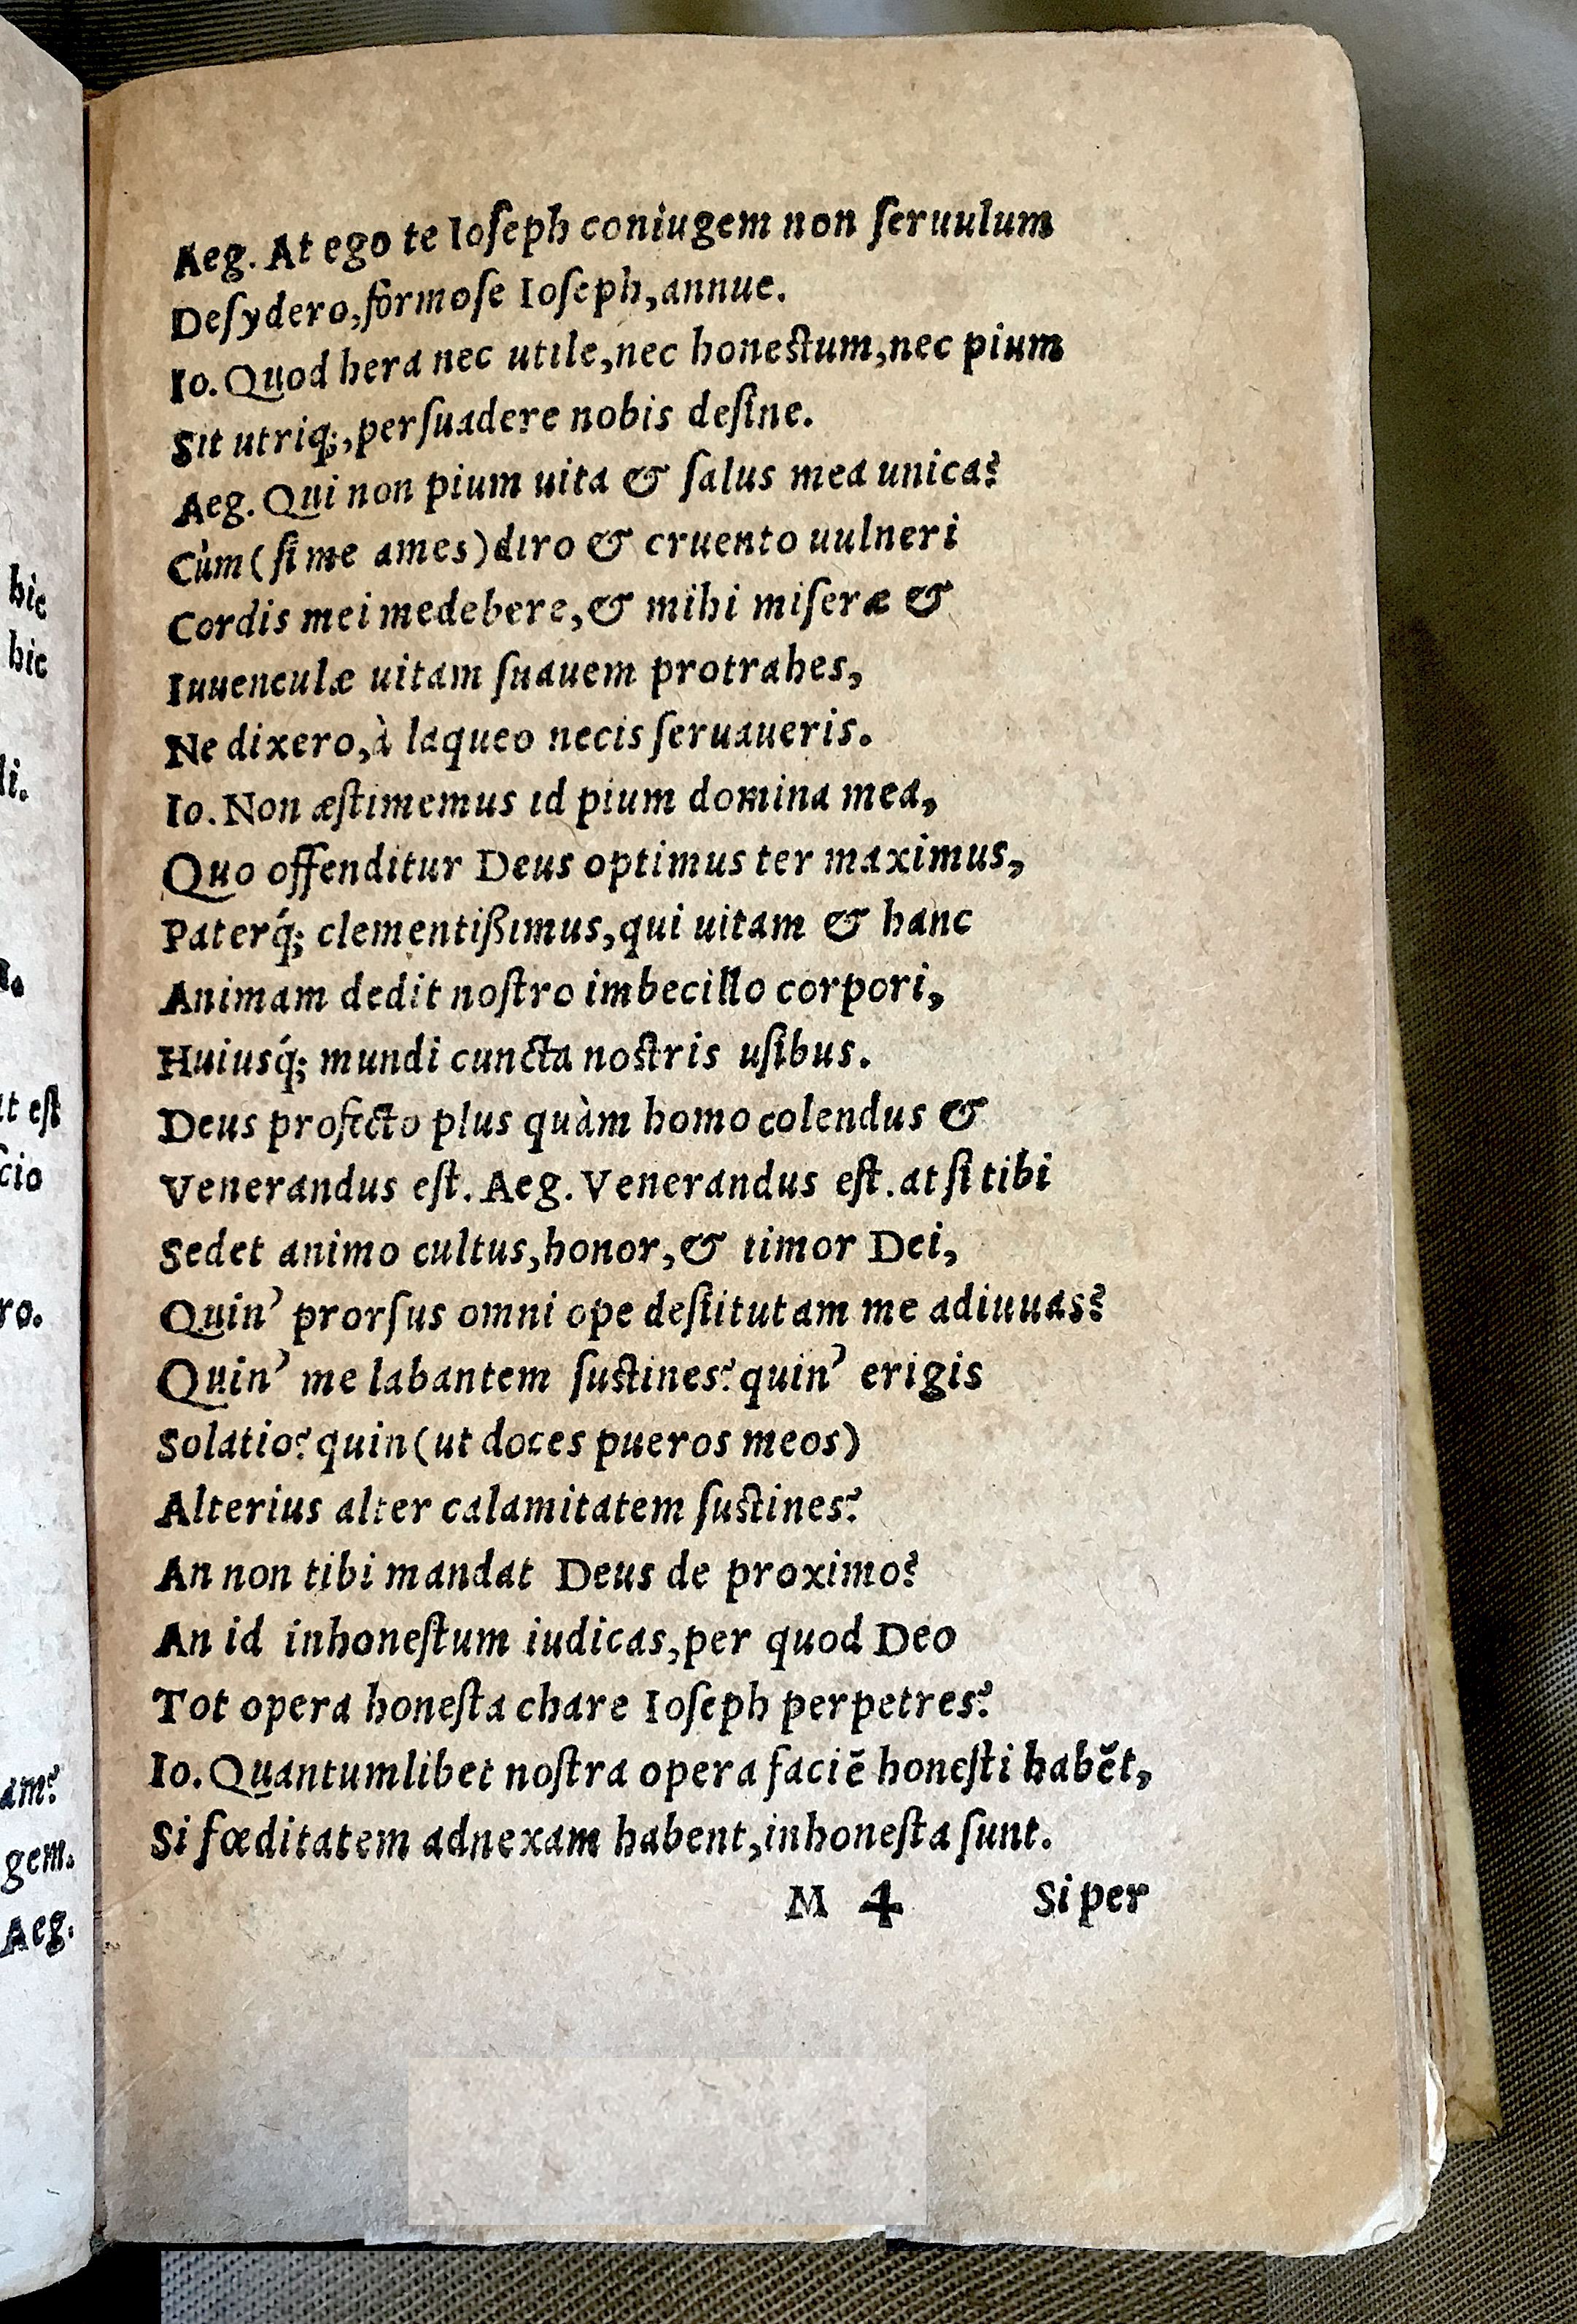 hic
hic
li.
it eſt
cio
ro.
am?
gem.
Aeg.
Aeg. At ego te Ioſeph coniugem non ſeruulum
Deſydero, formoſe Ioſeph, annue.
Io. Quod hera nec utile, nec honeſtum, nec pium
Sit utriq;, perſuadere nobis deſine.
Aeg. Qui non pium uita & ſalus mea unica?
Cùm (ſi me ames) diro & cruento uulneri
Cordis mei medebere, & mihi miſeræ &
Iuuenculæ uitam ſuauem protrahes,
Ne dixero, à laqueo necis ſeruaueris.
Io. Non æſtimemus id pium domina mea,
Quo offenditur Deus optimus ter maximus,
Paterq́; clementißimus, qui uitam & hanc
Animam dedit noſtro imbecillo corpori,
Huiusq́; mundi cuncta noſtris uſibus.
Deus profecto plus quàm homo colendus &
Venerandus eſt. Aeg. Venerandus eſt. at ſi tibi
Sedet animo cultus, honor, & timor Dei,
Quin' prorſus omni ope deſtitutam me adiuuas?
Quin' me labantem ſuſtines? quin' erigis
Solatio? quin (ut doces pueros meos)
Alterius alter calamitatem ſuſtines?
An non tibi mandat Deus de proximo?
An id inhoneſtum iudicas, per quod Deo
Tot opera honeſta chare Ioſeph perpetres?
Io. Quantumlibet noſtra opera faciē honeſti habēt,
Si fœditatem adnexam habent, inhoneſta ſunt.
M 4 Si per